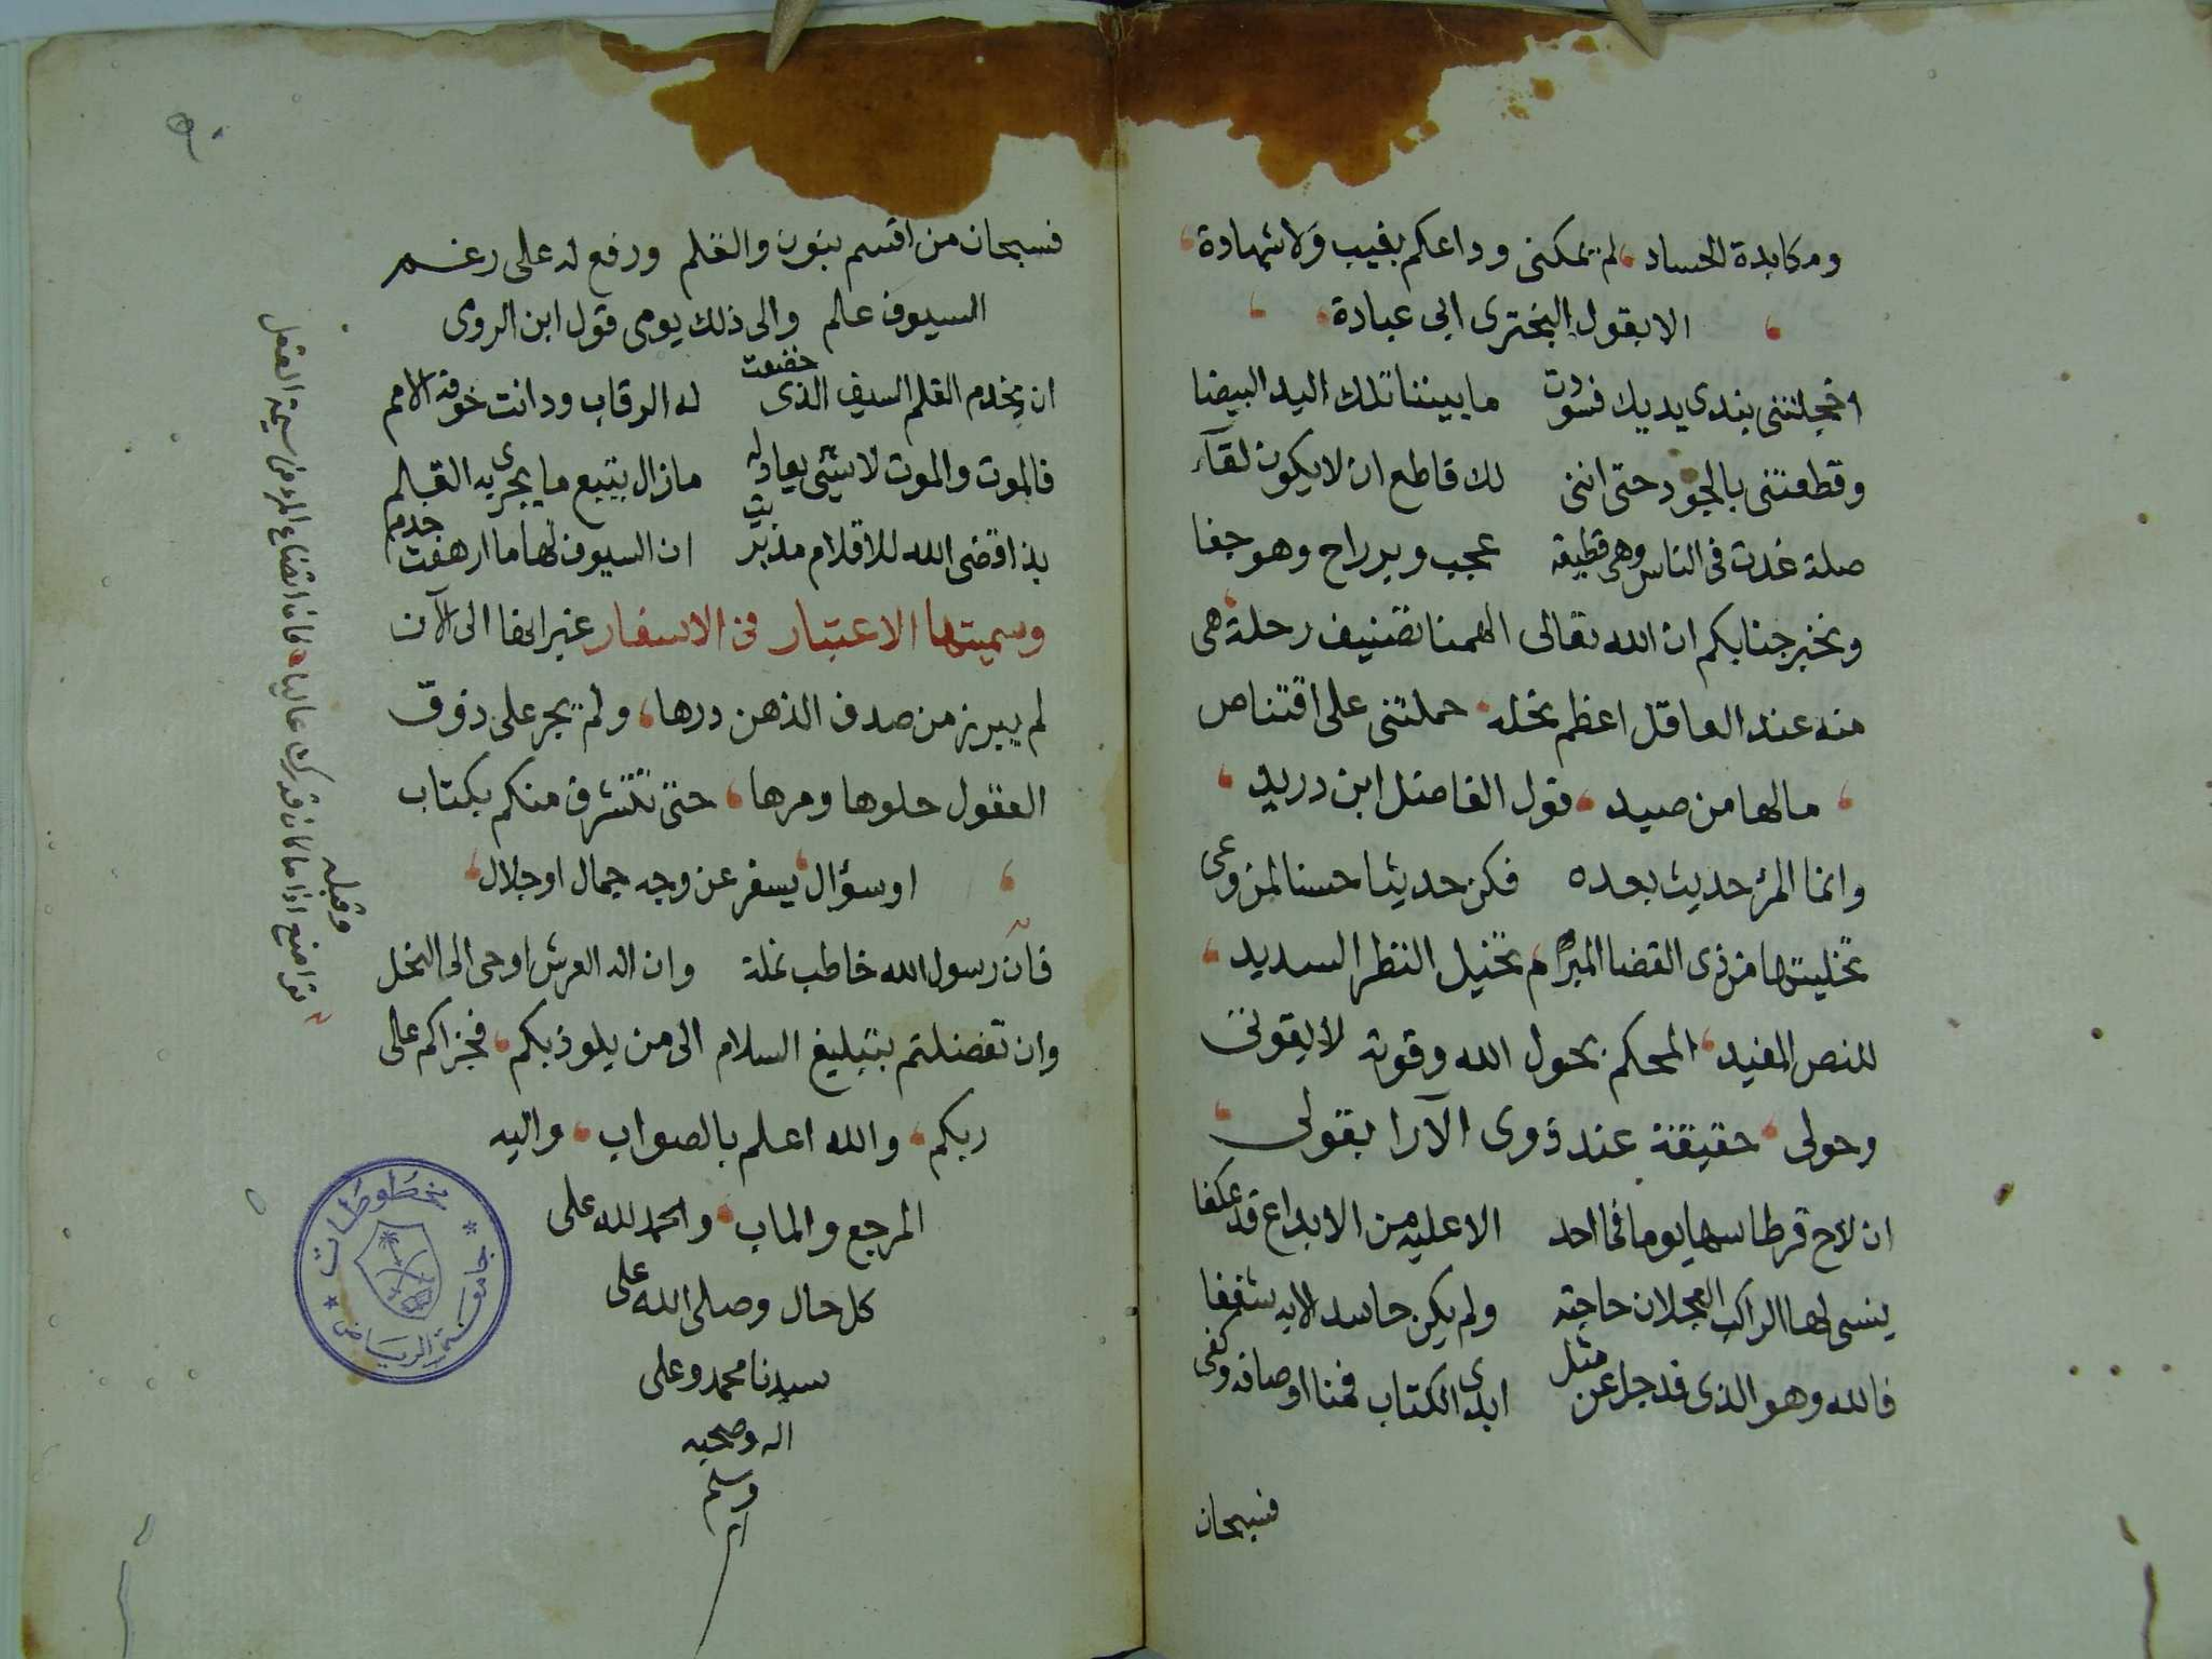 ومكابدة الحساد، لم تمكنى وداعكم بغيب ولا شهادة،
الا بقول البحترى ابى عبادة،
اخجلتنى بندى يديك فسودت ما بيننا تلك اليد البيضا
وقطعتنى بالجود حتى اننى لك قاطع ان لا يكون لقآء
صلة غدت فى الناس وهى قطيعه عجب وبر راح وهو جفا
ونخبر جنابكم ان الله تعالى الهمنا تصنيف رحلة، هى
منه عند العاقل اعظم نحله، حملتنى على اقتناص
، مالها من صيد، قول الفاضل ابن دريد،
وانما المرء حديث بعده فكن حديثا حسنا لمن وعى
تخليتها من ذى القضا المبرام، تخيل النظر السديد،
للنص المفيد، المحكم بحول الله وقوته لا بقوتى
وحولى، حقيقة عند ذوى الآرا بقولى،
ان لاح قرطاسها يوما فما احد الا عليه من الابداع قد عكفا
ينسى لها الراكب العجلان حاجته ولم يكن حاسد الا به شغفا
فالله وهو الذى قد جل عن مثل ابدى الكتاب فمنا اوصافه وكفى
فسبحان
٩٠
فسبحان من اقسم بنون والقلم ورفع له على رغم
السيوف علم والى ذلك يومى قول ابن الرومى
ان يخدم القلم السيف الذى خضعت له الرقاب ودانت خوفه الامم
فالموت والموت لا شيئ يعادله مازال يتبع ما يجرى به القلم
بذا قضى الله للاقلام مذ بريت ان السيوف لها ما ارهفت خدم
وسميتها الاعتبار فى الاسفار غير انها الى الآن
لم يبرز من صدف الذهن درها، ولم يجر على ذوق
العقول حلوها ومرها، حتى تتشرف منكم بكتاب
، او سؤال، يسفر عن وجه جمال او جلال،
فان رسول الله خاطب نملة وان اله العرش اوحى الى النحل
وان تفضلتم بتبليغ السلام الى من يلوذ بكم، فجزاكم على
ربكم، والله اعلم بالصواب، واليه
المرجع والماب، والحمد لله على
كل حال وصلى الله على
سيدنا محمد وعلى
اله وصحبه
وسلم
وقبله
تواضع اذا ما كان قدرك عاليا، فان اتضاع المرء من سيمة العقل
مخطوطات
جامعة الرياض